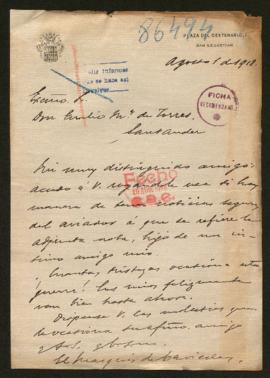 86494
PLAZA DEL CENTENARIO,
SAN SEBASTIAN
Agosto 1 de 1918.
Excmo. Sr.
Don Emilio Mª de Torres.
Santander
FICHA
Mi muy distinguido amigo:
acudo á V. rogándole vea si hay
manera de tener noticias seguras
del aviador á que se refiere la
adjunta nota, hijo de un ín-
timo amigo mío.
Hecho
¡Cuántas tristezas ocasiona esta
guerra! Los míos felizmente
van bien hasta ahora.
Dispense V. las molestias que
le ocasiona su afmo. amigo
El Marqués de